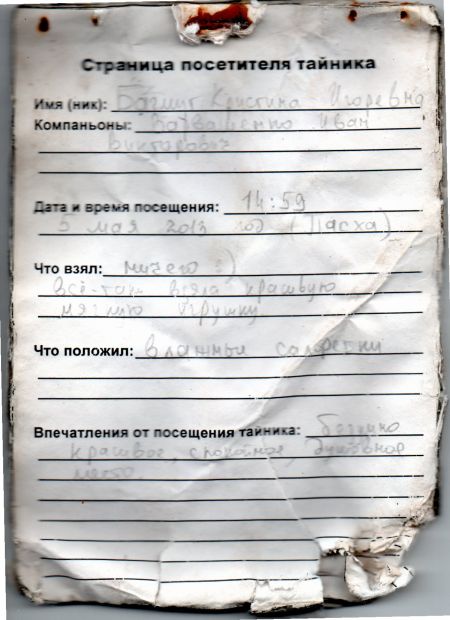 Страница посетителя тайника
Имя (ник): Кристина Игоревна
Компаньоны: Иван
Викторович
Дата и время посещения: 14:59
5 мая 2013 год (Пасха)
Что взял: ничего :)
всё-таки взяла красивую
мягкую игрушку
Что положил: влажные салфетки
Впечатления от посещения тайника: безумно
красивое, спокойное, душевное
место.